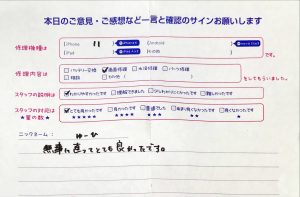 本日のご意見・ご感想など一言と確認のサインお願いします
修理機種は
iPhone 11
Android
iPad
その他
修理内容は
バッテリー交換 画面修理 水没修理 パーツ修理
その他
をしてもらいました。
スタッフの説明は
わかりやすかった 理解できました 少しわかりにくかった 難しかった
スタッフの対応は
★星の数★
とても良かった 良かった 普通でした 良くなかった
★★★★★ ★★★★ ★★★ ★★ ★
ニックネーム: ゆーひ
無事に直ってとても良かったです。